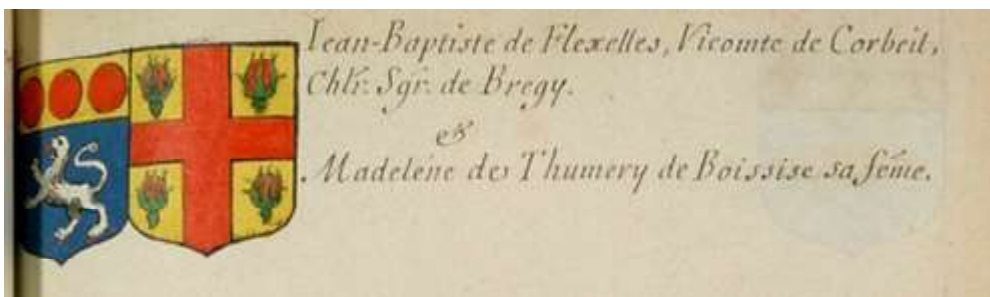 Iean-Baptiste de Flexelles, Vicomte de Corbeil,
Chlr. Sgr. de Bregy.
&
Madelene des Thumery de Boissise sa fẽme.